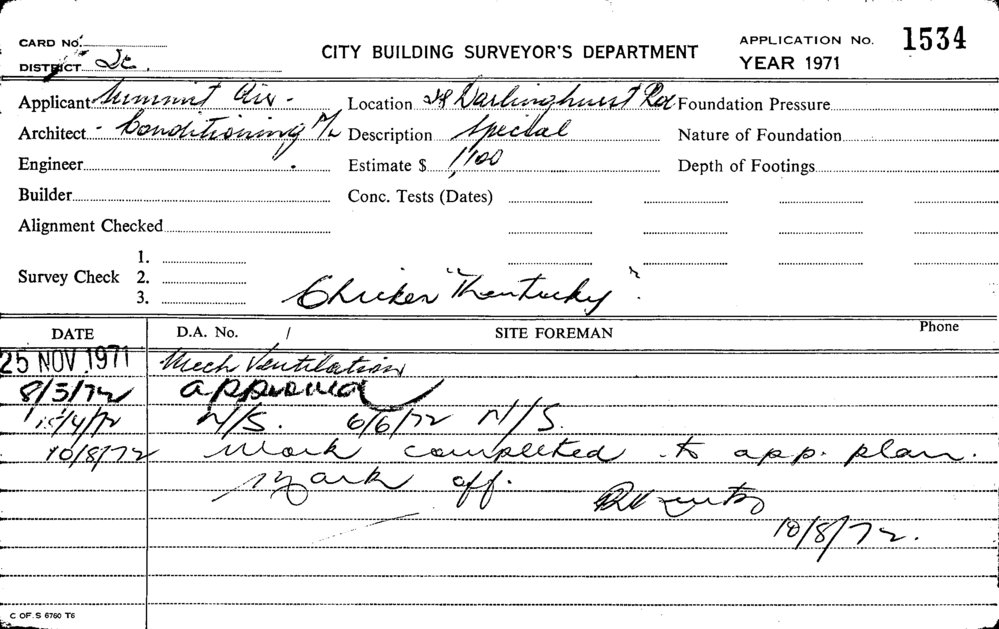 CARD No.
CITY BUILDING SURVEYOR'S DEPARTMENT
APPLICATION No. 1534
DISTRICT
YEAR 1971
Applicant Summit Air-
Location Darlinghurst Rd
Foundation Pressure
Architect - Conditioning P/L
Description Special
Nature of Foundation
Engineer
Estimate $ 1,100
Depth of Footings
Builder
Conc. Tests (Dates)
Alignment Checked
Survey Check 1.
2.
3.
Chicken "Kentucky".
DATE D.A. No. / SITE FOREMAN Phone
25 NOV 1971 Mech Ventilation
8/3/72 approved
/4/72 N/S. 6/6/72 N/S.
10/8/72 Work completed to app. plan.
Mark off.
10/8/72.
C OF. S 6760 T6